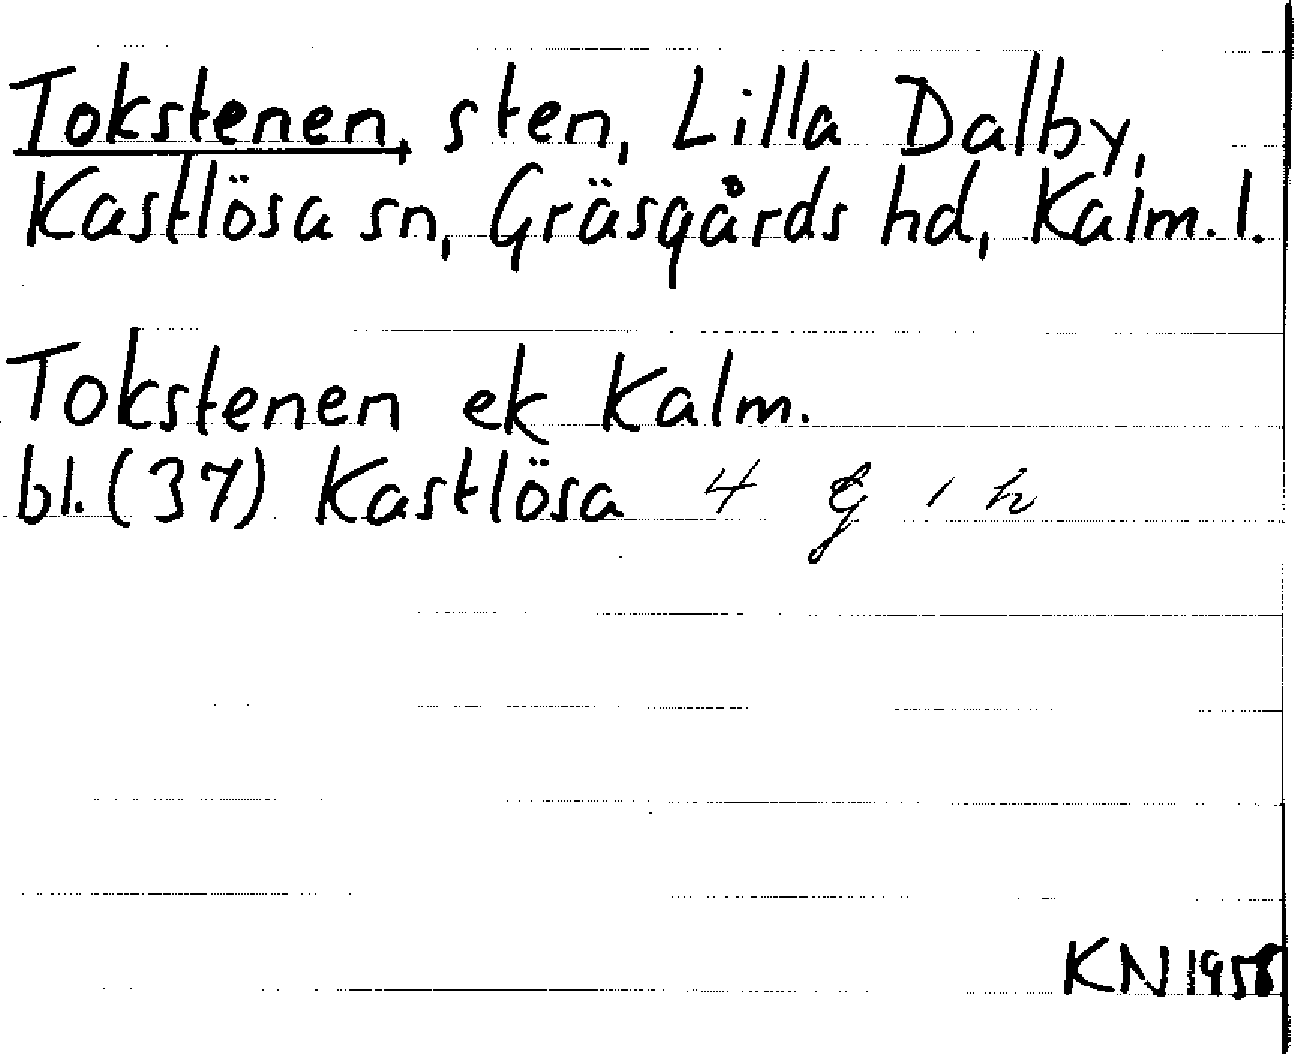 Tokstenen, sten, Lilla Dalby,
Kastlösa sn, Gräsgårds hd, Kalm. l.
Tokstenen ek Kalm.
bl. (37) Kastlösa 4 g 1 h
KN 1958